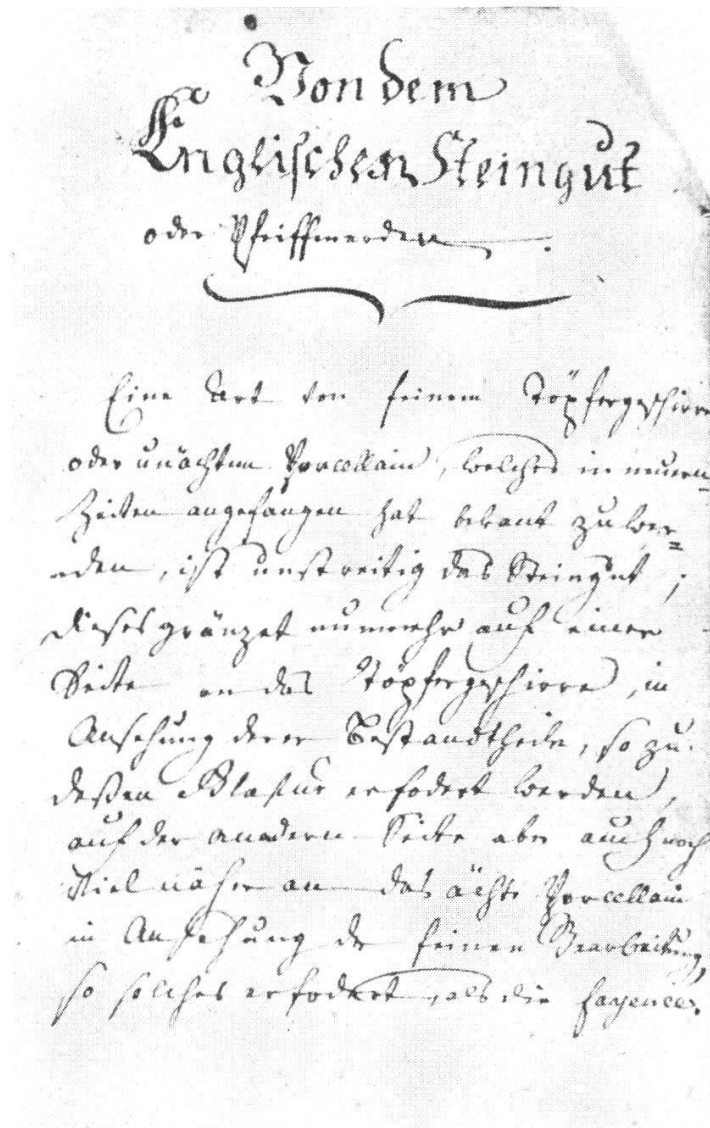 Von dem
Englischen Steingut
oder Pfeiffenerden.
Eine Art von feinem Töpfergeschirre
oder unächtem Porcellain, welches in neuern
Zeiten angefangen hat bekant zu wer=
den, ist unstreitig das Steingut;
dieses gränzet nunmehr auf einer
Seite an das Töpfergeschirre, in
Ansehung derer Bestandtheile, so zu
deßen Glasur erfodert werden,
auf der andern Seite aber auch noch
viel näher an das ächte Porcellain
in Ansehung der feinen Bearbeitung,
so solches erfodert, als die Fayence.